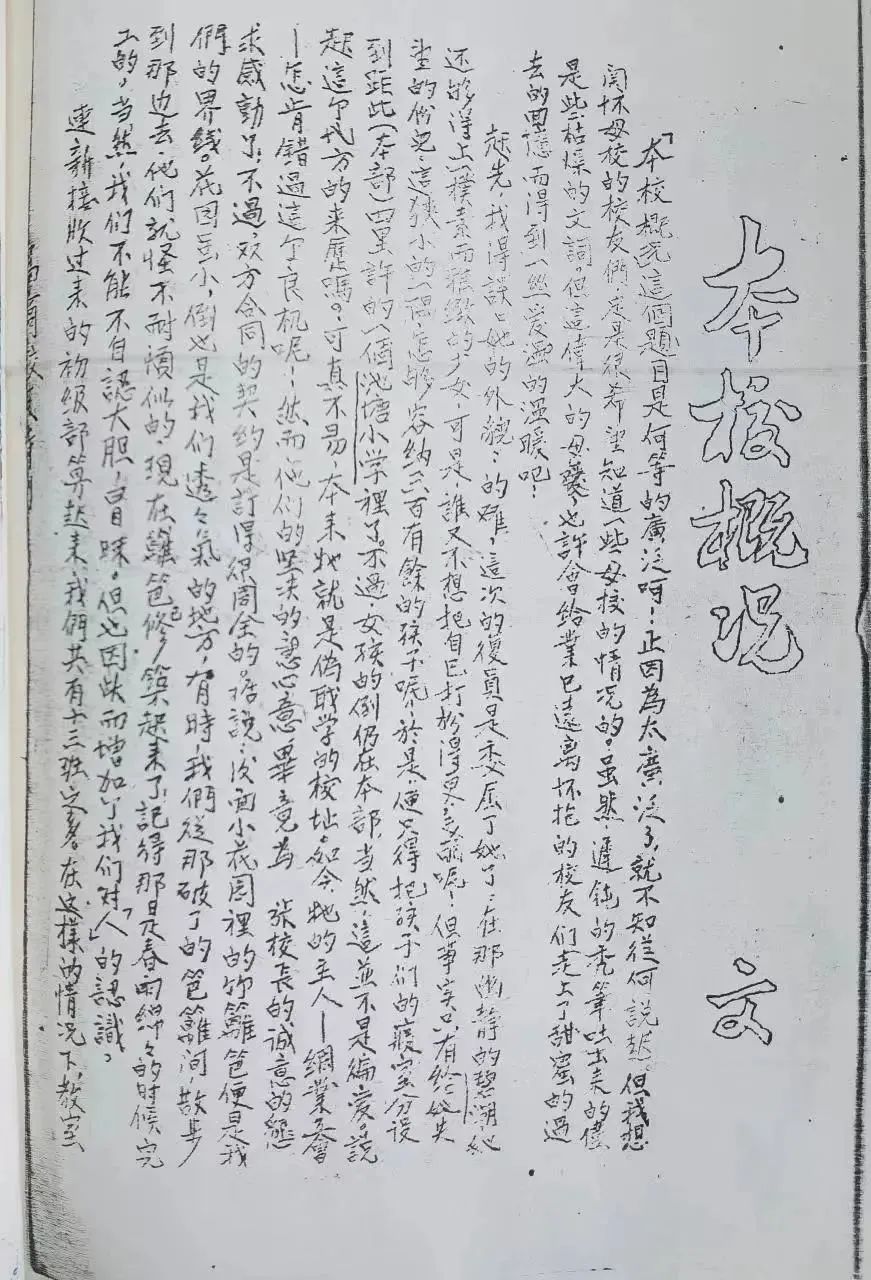 本校概况
文
「本校概况」這個題目是何等的廣泛呵！正因為太廣泛了，就不知從何説起。但我想
関怀母校的校友們一定是很希望知道一些母校的情况的。虽然，遲鈍的禿筆吐出来的僅
是些枯燥的文詞。但這偉大的母愛，也許会給業已遠离怀抱的校友们走上了甜蜜的過
去的囬憶而得到一丝爱溫的溫暖吧！
起先，我得談々她的外貌：的确，這次的復員是委屈了她了：在那幽静的鴛湖她
还够得上樸素而雅緻的少女，可是，誰又不想把自已打扮得更美麗呢！但事实只有給她失
望的份兒：這狹小的一隅，怎能够容納六百有餘的孩子呢！於是，便只得把孩子们的寢室分设
到距此（本部）四里許的一個池塘小学裡了。不過，女孩的倒仍在本部，当然，這並不是偏爱。説
起這个地方的来歴嗎。可真不易，本来牠就是偽職学的校址，如今牠的主人—綢業公會
—怎肯錯過這个良机呢！然而，他们的坚决的心意畢竟為 張校長的诚意的懇
求感動了，不過，双方合同的契约是訂得很周全的。据説：后面小花園裡的竹籬笆便是我
們的界线。花园虽小，倒也是我们透々氣的地方，有時，我們從那破了的笆籬间，散步
到那边去，他们就怪不耐煩似的，現在籬笆已修築起来了，記得那是春雨綿々的时候完
工的，当然，我们不能不自認大胆，冒昧。但也因此而增加了我们对「人」的認識。
連新接收过来的初级部算起来，我們共有十三班之多。在这樣的情况下，教室